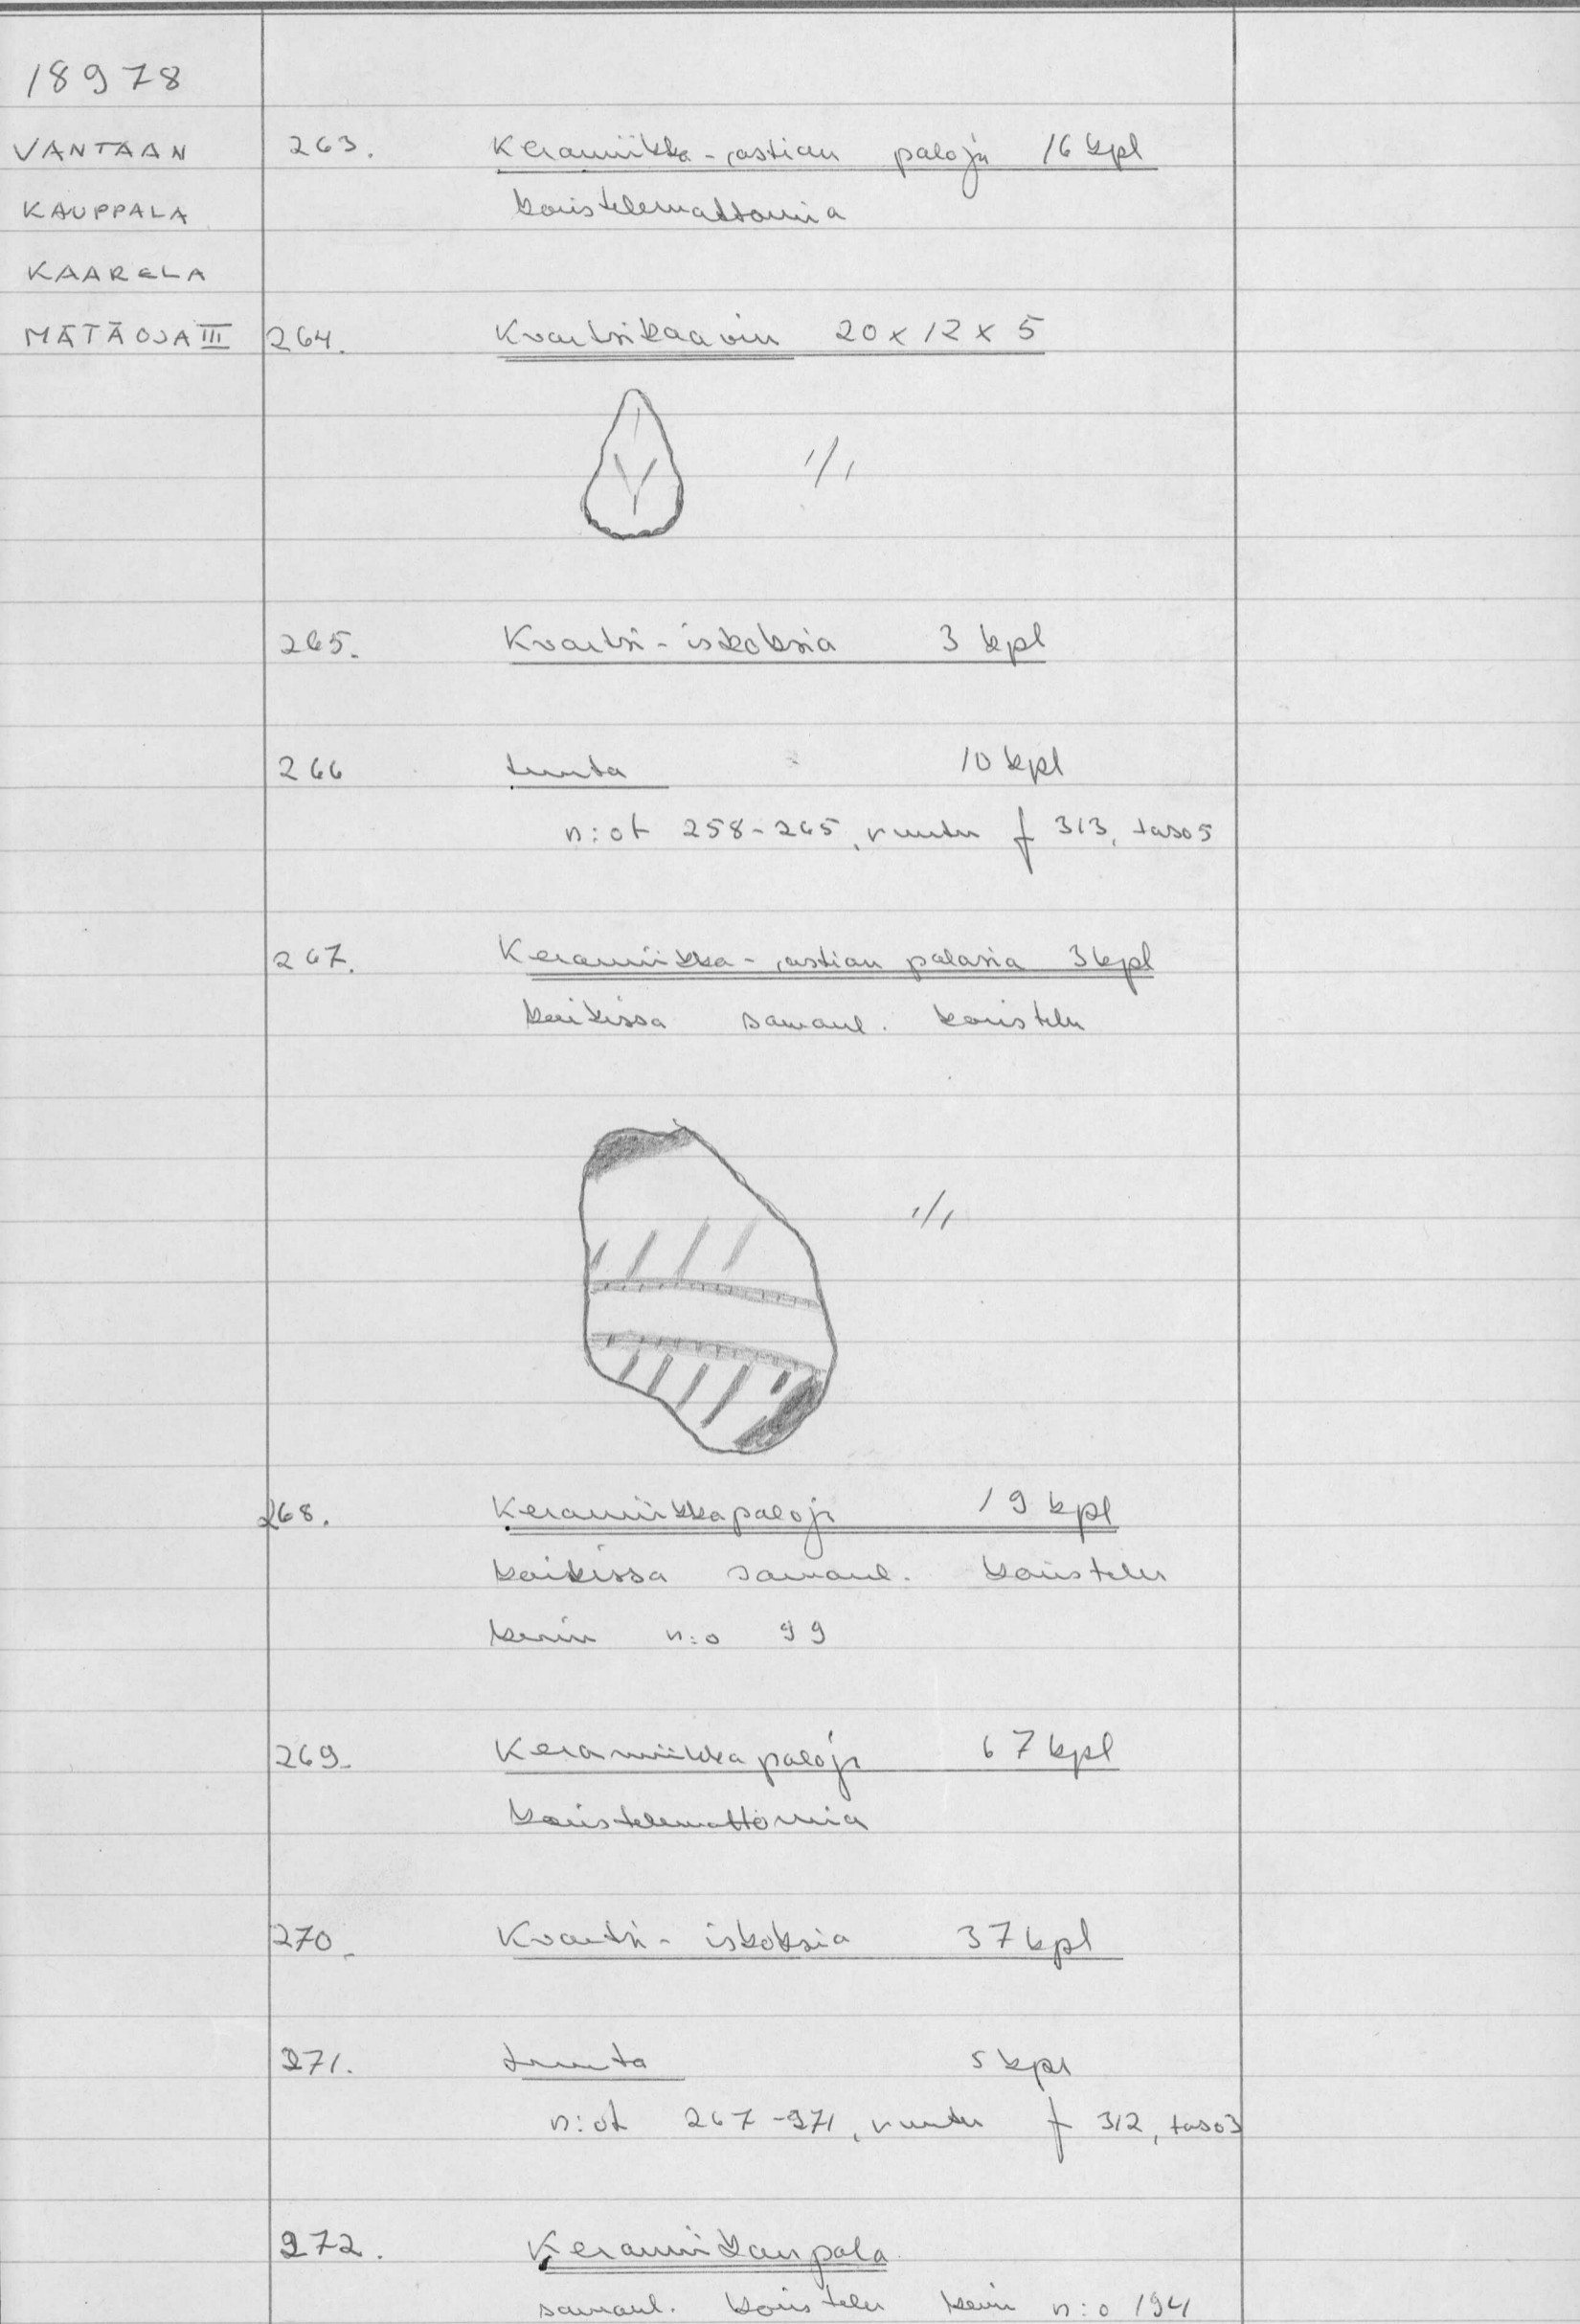 18978
VANTAAN
KAUPPALA
KAARELA
MÄTÄOJA III
263. Keramiikka-astian paloja 16 kpl
koristelemattomia
264. Kvartsikaavin 20 x 12 x 5
1/1
265. Kvartsi-iskoksia 3 kpl
266 Luuta 10 kpl
n:ot 258-265, ruutu f 313, taso 5
267. Keramiikka-astian palasia 3 kpl
kaikissa samanl. koristelu
1/1
268. Keramiikkapaloja 19 kpl
kaikissa samanl. koristelu
kuin n:o 99
269. Keramiikkapaloja 67 kpl
koristelemattomia
270. Kvartsi-iskoksia 37 kpl
271. Luuta 5 kpl
n:ot 267-271, ruutu f 312, taso 3
272. Keramiikanpala
samanl. koristelu kuin n:o 194